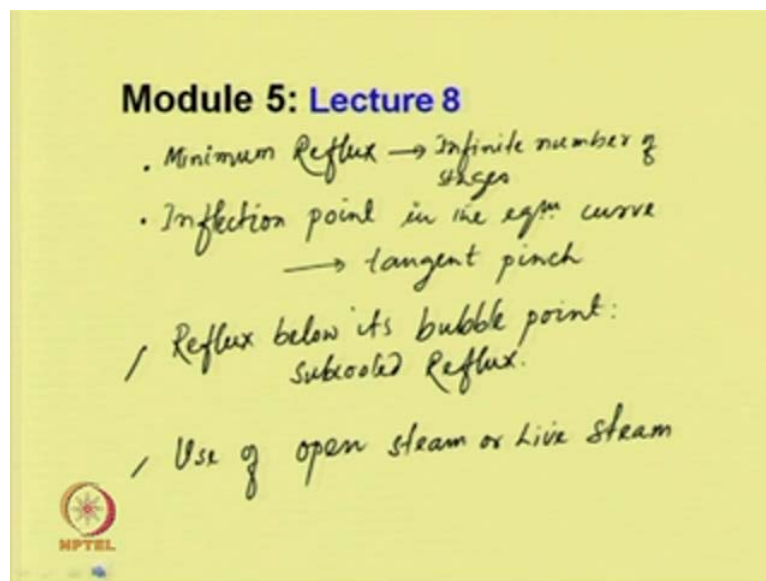 Module 5: Lecture 8
. Minimum Reflux → Infinite number of
stages
. Inflection point in the eqm curve
→ tangent pinch
/ Reflux below its bubble point:
subcooled Reflux.
/ Use of open steam or Live steam
NPTEL